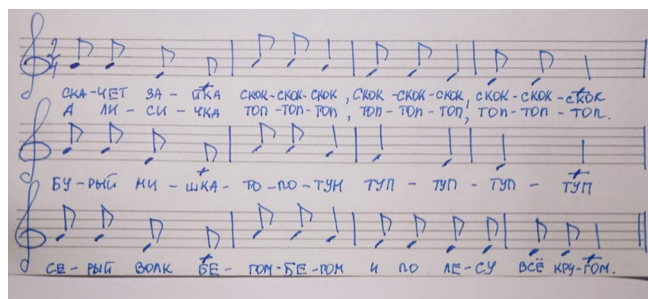 2
4
СКА-ЧЕТ ЗА - ЙКА СКОК-СКОК-СКОК, СКОК-СКОК-СКОК, СКОК-СКОК-СКОК
А ЛИ - СИ - ЧКА ТОП-ТОП-ТОП, ТОП-ТОП-ТОП, ТОП-ТОП-ТОП.
БУ-РЫЙ МИ - ШКА- ТО-ПО-ТУН ТУП - ТУП - ТУП - ТУП
СЕ-РЫЙ ВОЛК БЕ- ГОМ-БЕ-ГОМ И ПО ЛЕ-СУ ВСЁ КРУ-ГОМ.